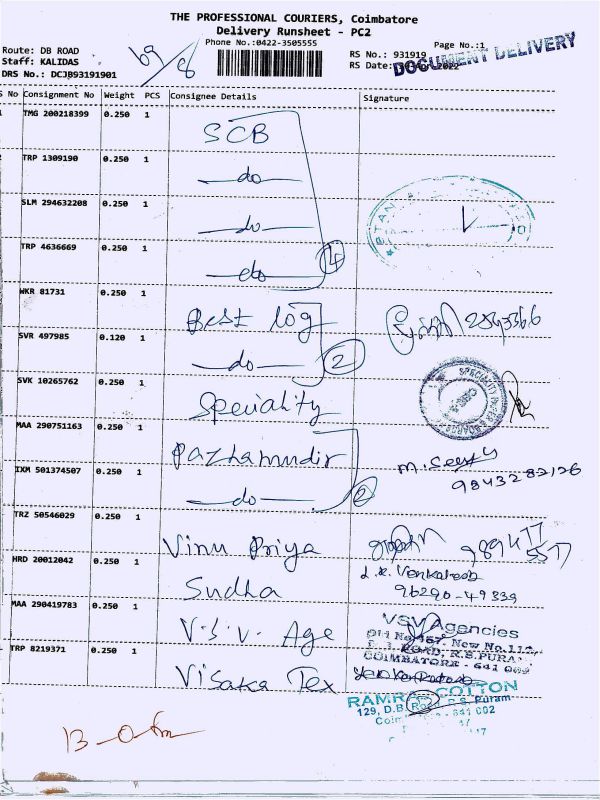 THE PROFESSIONAL COURIERS, Coimbatore
Delivery Runsheet - PC2
Phone No.:0422-3505555
Page No.:1
Route: DB ROAD
Staff: KALIDAS
DRS No.: DCJB93191901
RS No.: 931919
RS Date:
DOCUMENT DELIVERY
S No Consignment No Weight PCS Consignee Details Signature
TMG 200218399 0.250 1 SCB
TRP 1309190 0.250 1 do
SLM 294632208 0.250 1 do
TRP 4636669 0.250 1 do 4
WKR 81731 0.250 1 Best log
SVR 497985 0.120 1 do 2
SVK 10265762 0.250 1 Speciality
MAA 290751163 0.250 1 Pazhamudir
IXM 501374507 0.250 1 do 2
TRZ 50546029 0.250 1 Vinu Priya
HRD 20012042 0.250 1 Sudha 96290-49339
MAA 290419783 0.250 1 V.S.V. Age
VSV Agencies
ROAD, R.S.PURAM
COIMBATORE - 641 002
TRP 8219371 0.250 1 Visaka Tex
COTTON
129, D.B. Road, R.S. Puram
641 002